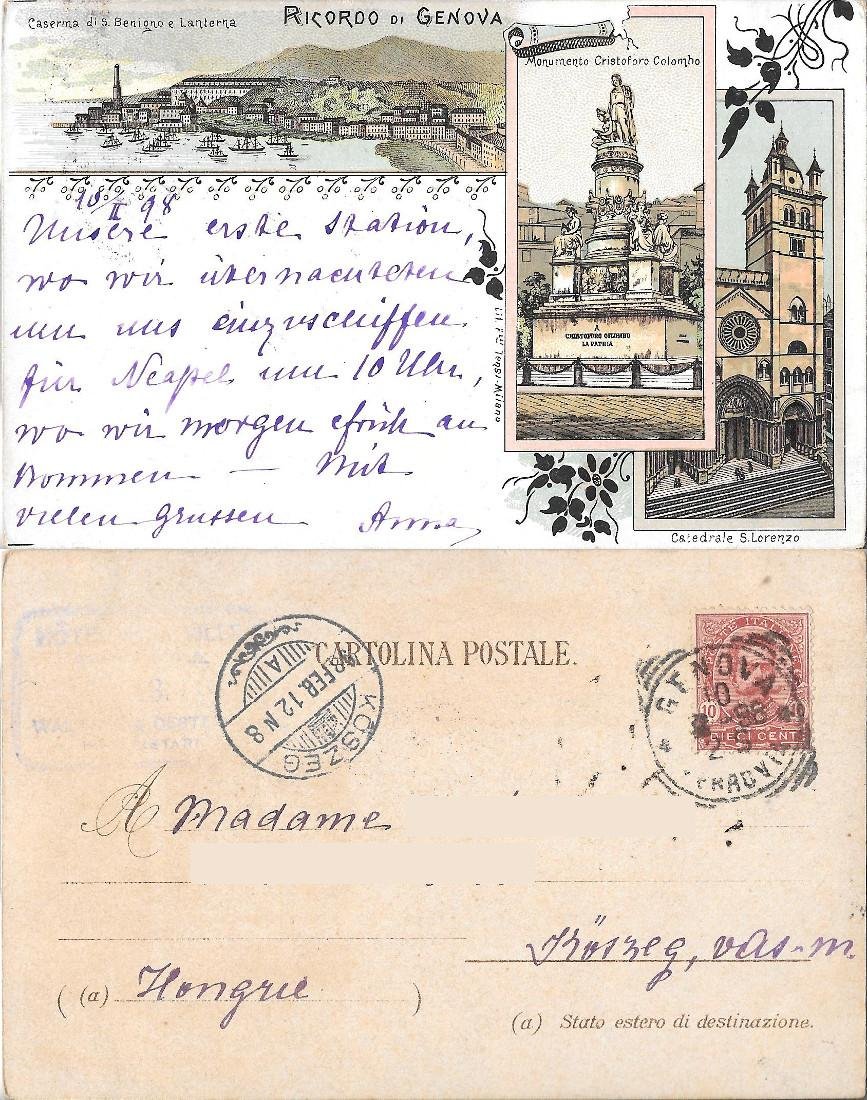 Caserma di S. Benigno e Lanterna
RICORDO DI GENOVA
Monumento Cristoforo Colombo
10/II 98
Unsere erste Station,
wo wir übernachteten
um uns einzuschiffen
für Neapel um 10 Uhr,
wo wir morgen früh an
kommen — Mit
vielen Grüssen Anna
A
CRISTOFORO COLOMBO
LA PATRIA
Catedrale S. Lorenzo
CARTOLINA POSTALE.
98 FEB. 12 N 8
A
KÖSZEG
GENOVA
10
2-98
FERROVIA
10
DIECI CENT
A Madame
Köszeg, Vas-m.
(a) Hongrie
(a) Stato estero di destinazione.